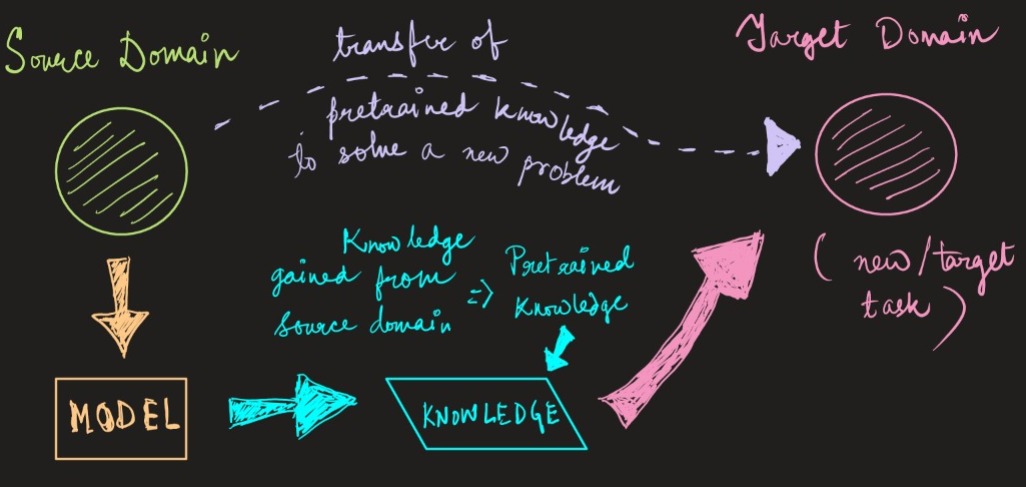 Source Domain
transfer of
pretrained knowledge
to solve a new problem
Target Domain
Knowledge
gained from
source domain
=> Pretrained
Knowledge
(new/target
task)
MODEL
KNOWLEDGE